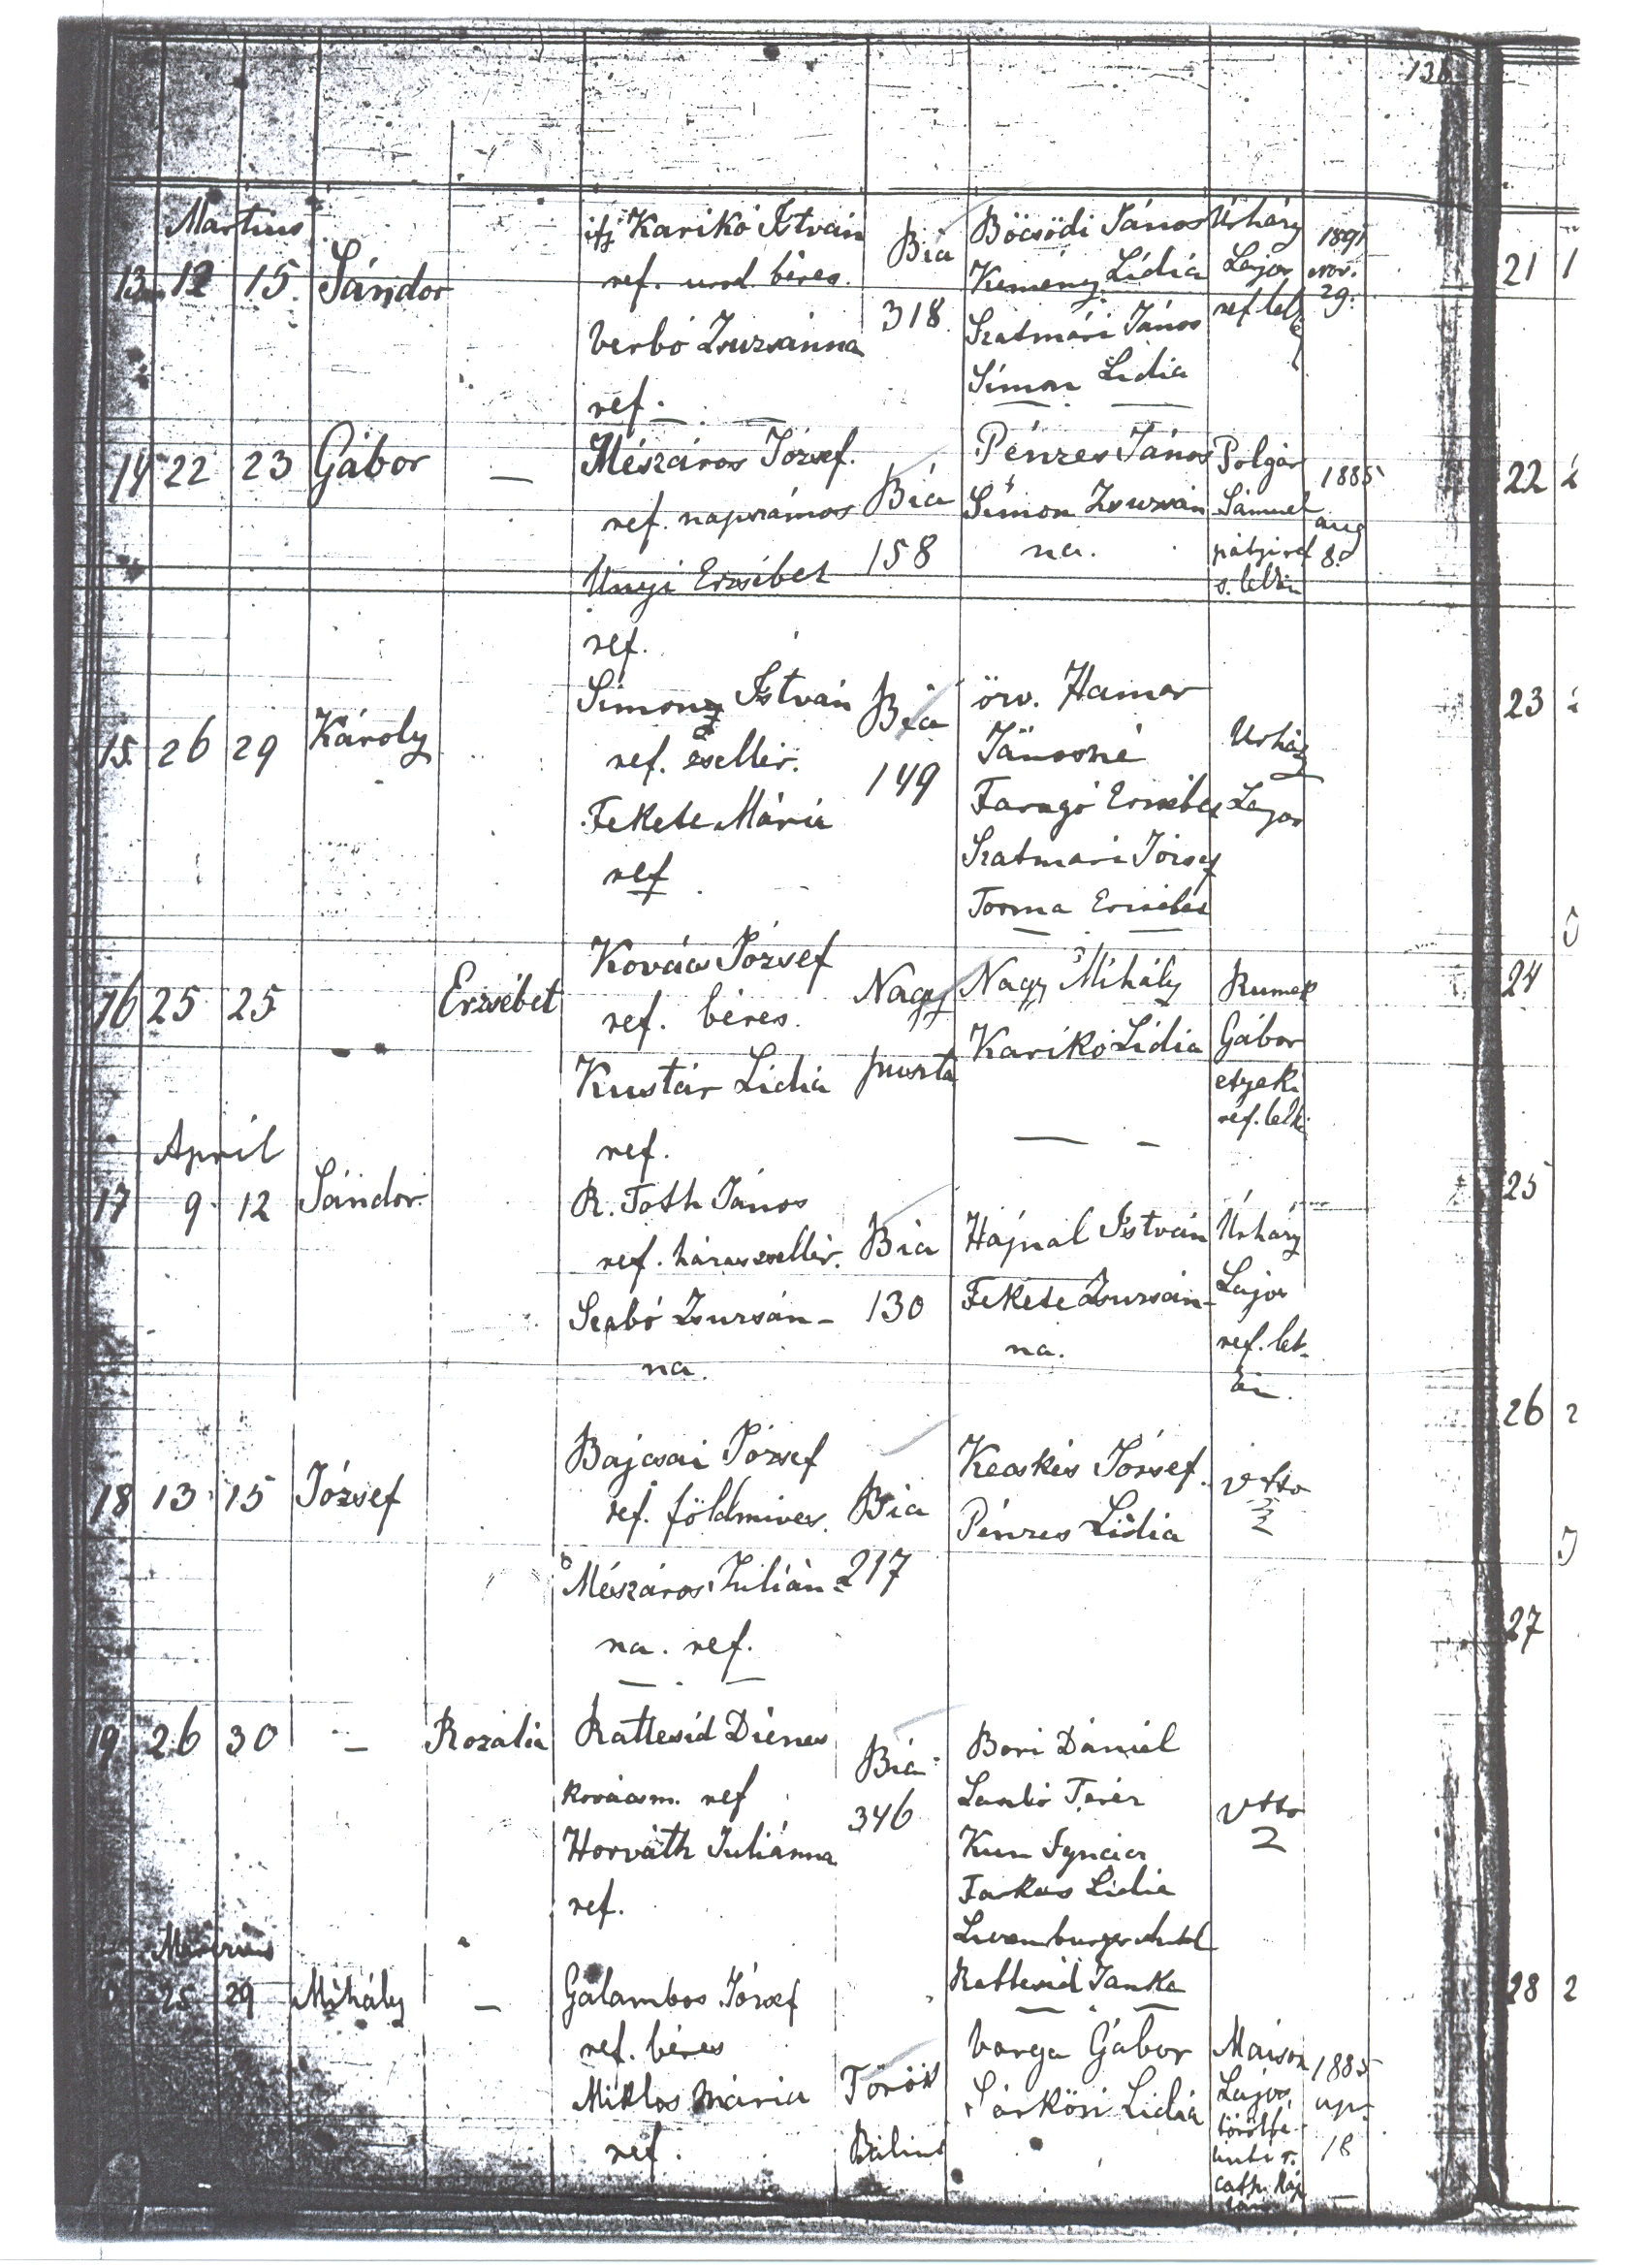 13
Martius
13 12 15. Sándor
ifj Karikó István
ref. urad. béres.
Verbó Zsuzsánna
ref.
Bia
318.
Böcsödi János
Kemény Lídia
Szatmári János
Simon Lidia
Úrházy
Lajos
ref. lelk
1891
nov.
29.
14 22 23 Gábor —
Mészáros József.
ref. napszámos
Unyi Erzsébet
ref.
Bia
158
Pénzes János
Simon Zsuzsán
na.
Polgár
Sámuel
pátyi ref
s. lelkész
1885
aug
8.
15. 26 29 Károly
Simon István
ref. zsellér.
Fekete Mária
ref
Bia
149
özv. Hamar
Jánosné
Faragó Erzsébet
Szatmari József
Torma Erzsébet
Urházy
Lajos
16 25 25 Erzsébet
Kovács József
ref. béres.
Kustár Lidia
ref.
Nagy
puszta
Nagy Mihály
Karikó Lídia
Gábor
etyeki
ref. lelk
April
17 9. 12 Sándor.
R. Toth János
ref. házas zsellér.
Szabó Zsuzsán-
na.
Bia
130
Hajnal István
Fekete Zsuzsán-
na.
Úrházy
Lajos
ref. lel-
18 13 15 József
Bajcsai József
ref. földmíves.
Mészáros Julián
na. ref.
Bia
217
Kecskés József.
Pénzes Lídia
vtto
19. 26 30 — Rozália
Rattesid Dienes
kovácsm. ref
Horváth Juliánna
ref.
Bia
346
Bori Dániel
Kun Ignácz
Farkas Lidia
Rattesid Janka
vtto
25 29 Mihály —
Galambos József
ref. béres
Miklos Mária
ref.
Török
Bálint
Varga Gábor
Sárközi Lidia
Lajos
1885
ap.
18
21 1
22
23
24
25
26 2
27
28 2